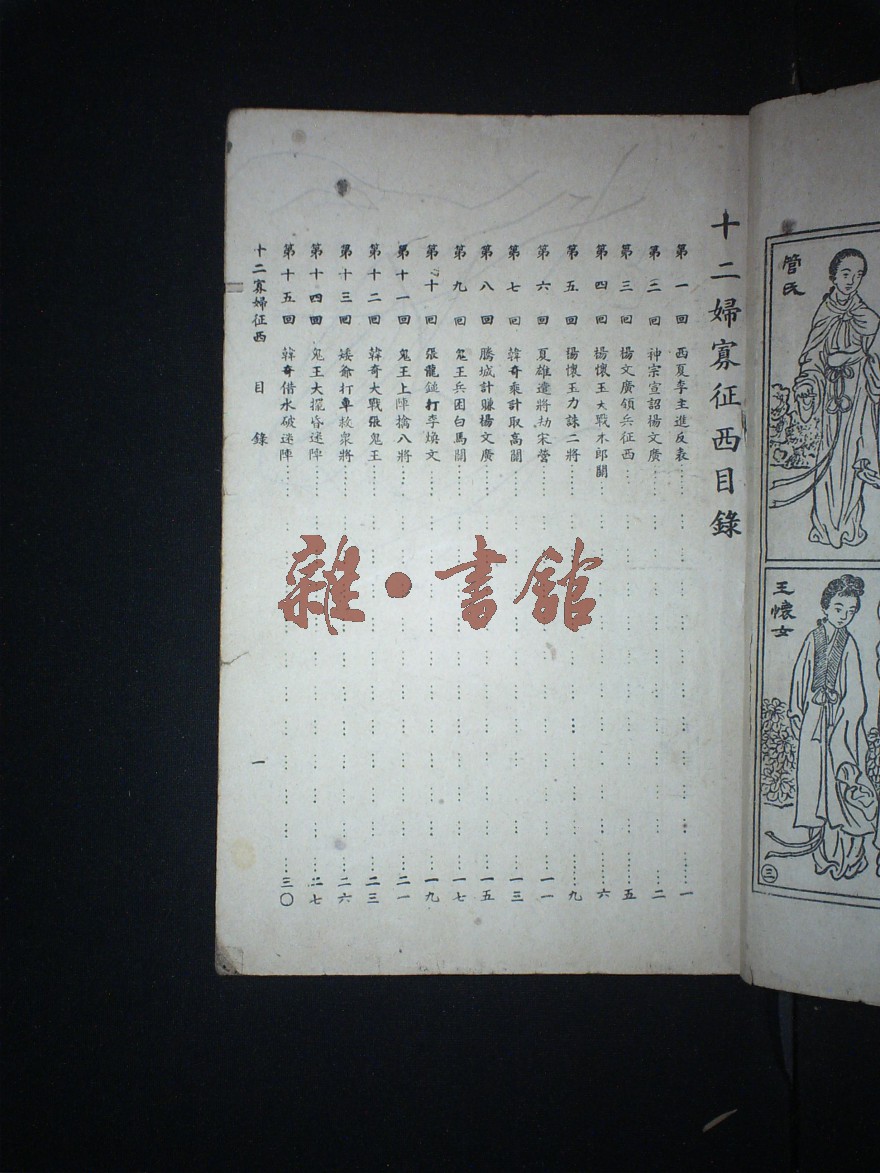 管氏
王懷女
三
十二婦寡征西目錄
第一回 西夏李主進反表……一
第二回 神宗宣詔楊文廣……二
第三回 楊文廣領兵征西……五
第四回 楊懷玉大戰木郎關……六
第五回 楊懷玉力誅二將……九
第六回 夏雄遣將劫宋營……一一
第七回 韓奇乘計取高關……一三
第八回 騰城計賺楊文廣……一五
第九回 鬼王兵困白馬關……一七
第十回 張龍鎚打李煥文……一九
第十一回 鬼王上陣擒八將……二一
第十二回 韓奇大戰張鬼王……二三
第十三回 矮爺打車救衆將……二六
第十四回 鬼王大擺昏迷陣……二七
第十五回 韓奇借水破迷陣……三〇
十二寡婦征西 目錄 一
雜·書館